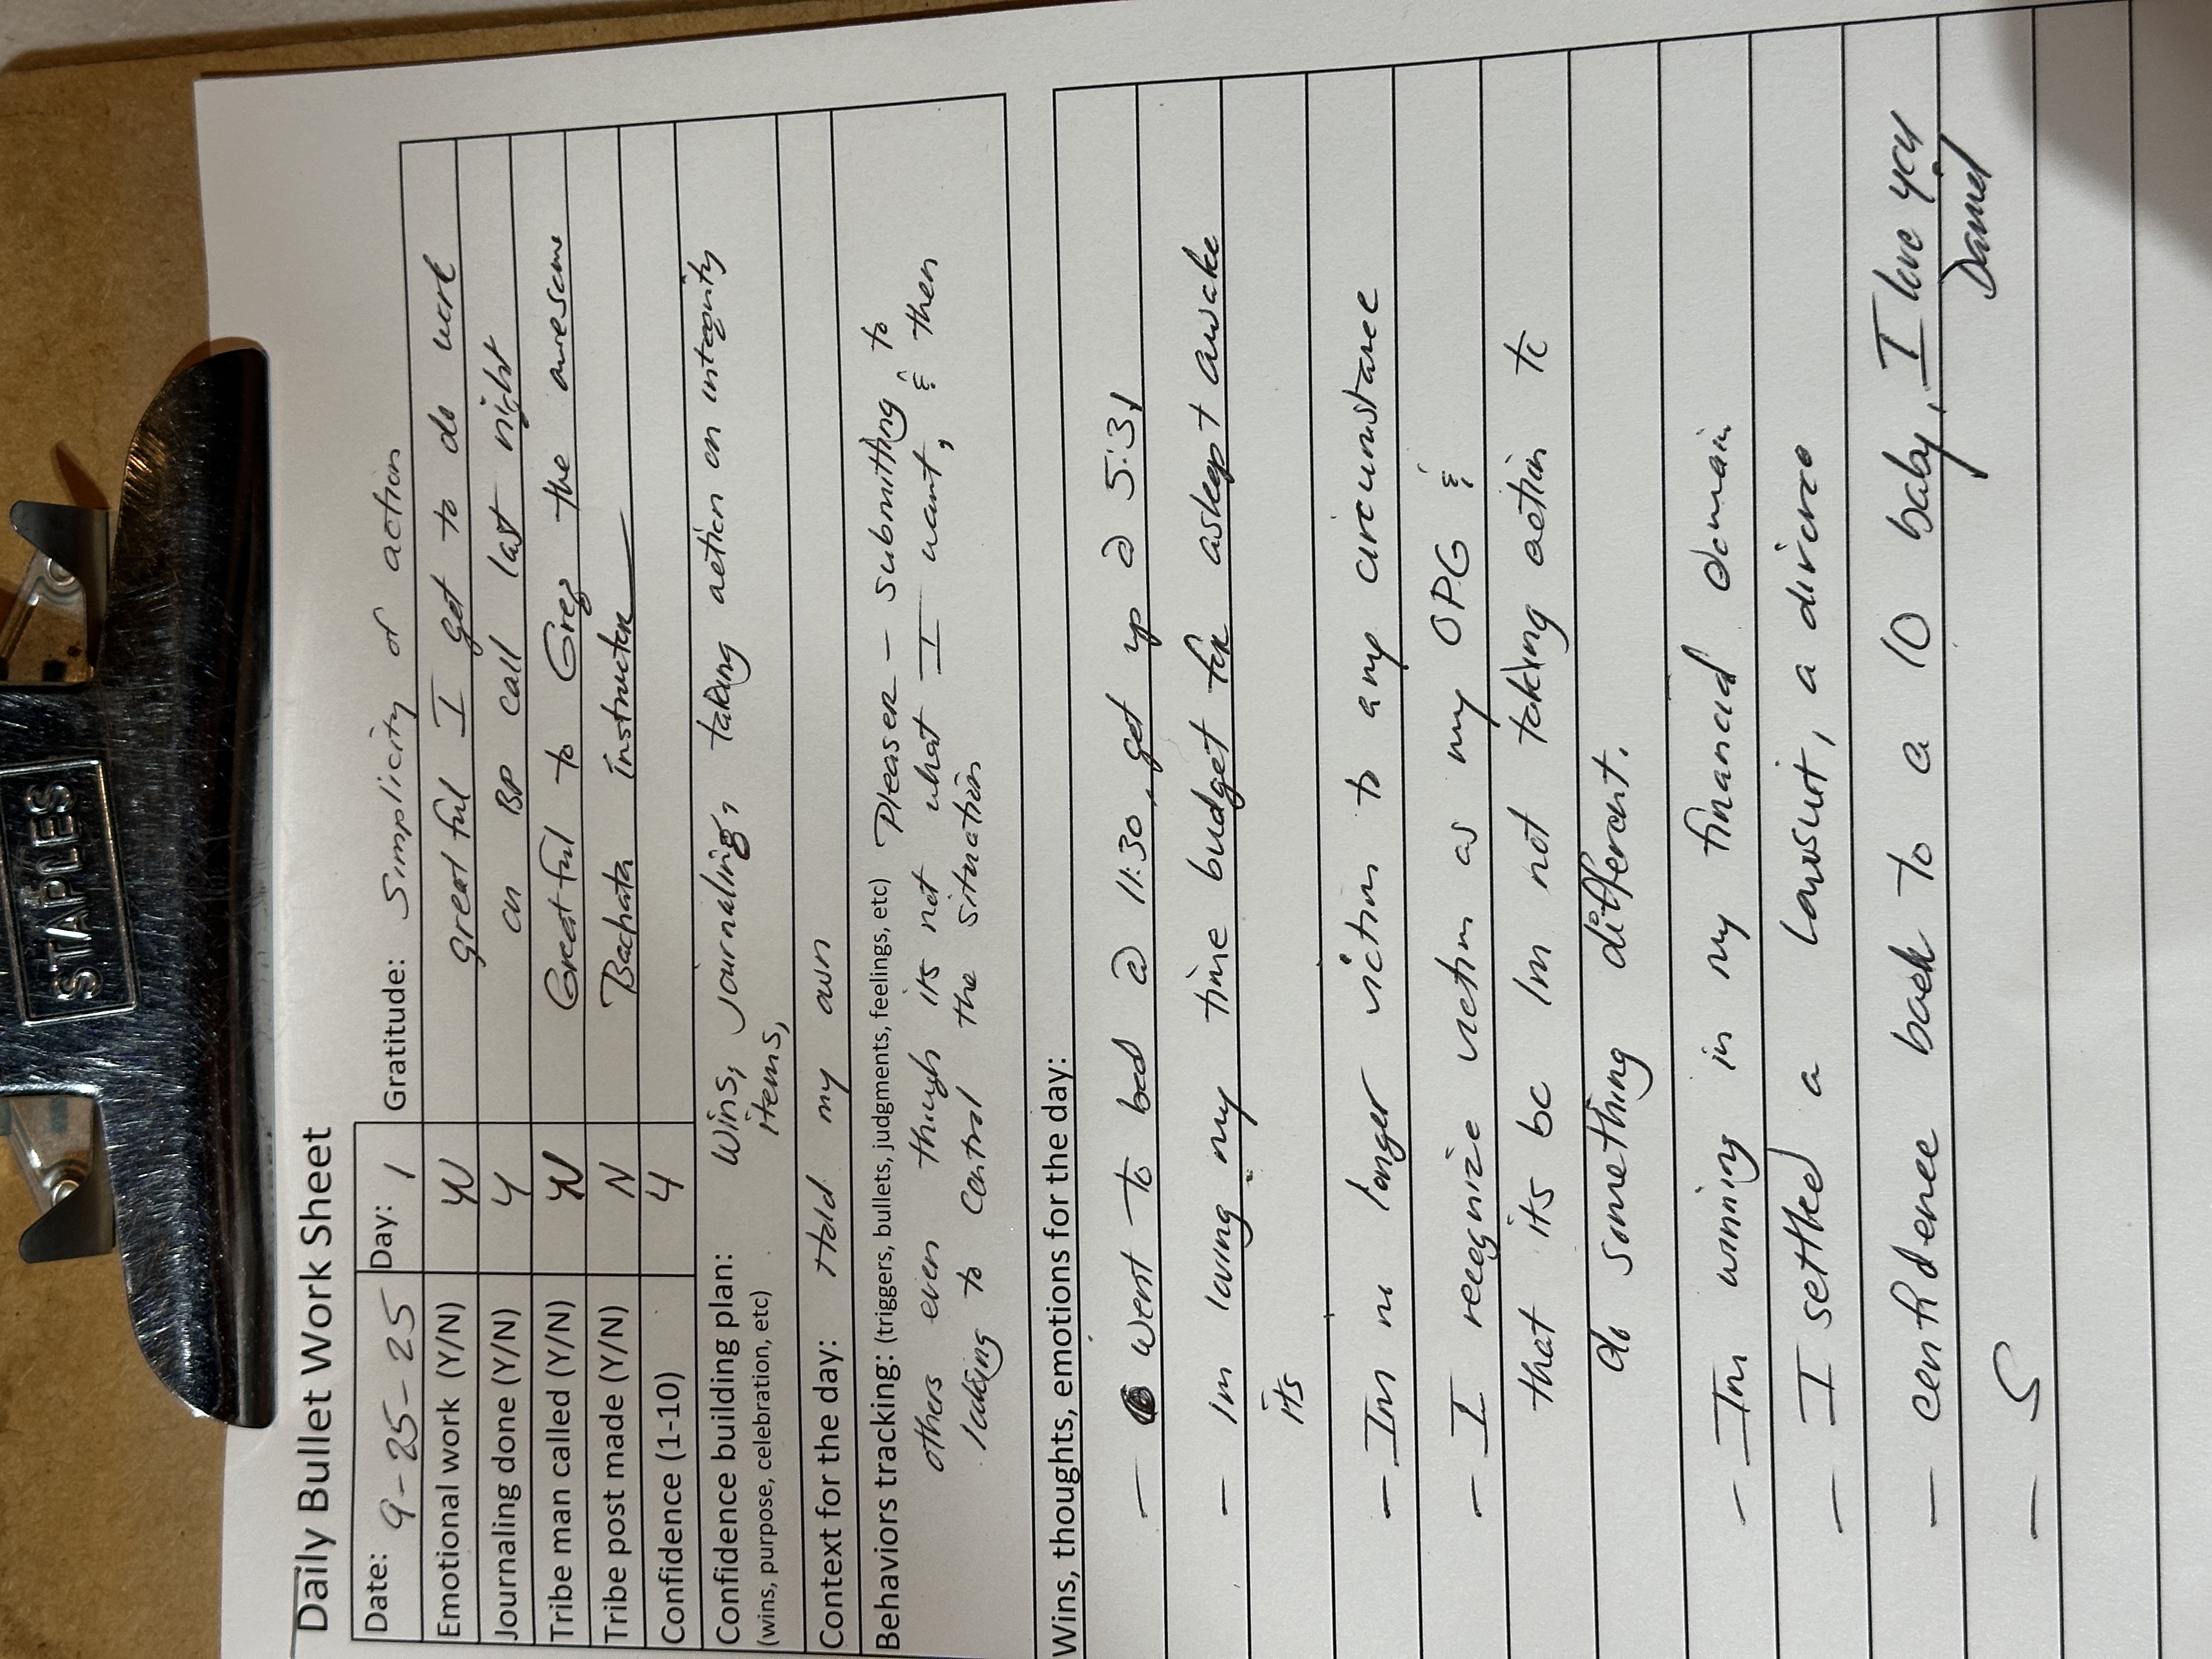 STAPLES
Daily Bullet Work Sheet
Date: 9-25-25 Day: 1 Gratitude: Simplicity of action
Emotional work (Y/N) greatful I get to do work
Journaling done (Y/N) Y on BP call last night
Tribe man called (Y/N) Greatful to Greg the awesome
Tribe post made (Y/N) N Bachata instructor
Confidence (1-10) 4
Confidence building plan: Wins, journaling, taking action on integrity
(wins, purpose, celebration, etc) items,
Context for the day: Hold my own
Behaviors tracking: (triggers, bullets, judgments, feelings, etc) Pleaser - submitting to
others even though its not what I want, & then
looking to control the situation
Wins, thoughts, emotions for the day:
- went to bed @ 11:30, get up @ 5:31
- Im loving my time budget for asleep + awake
its
- Im no longer victim to any circumstance
- I recognize victim as my OPG &
that its bc Im not taking action to
do something differant.
- Im winning in my financial domain
- I settled a lawsuit, a divorce
- confidence back to a 10 baby, I love you
Daniel
- S